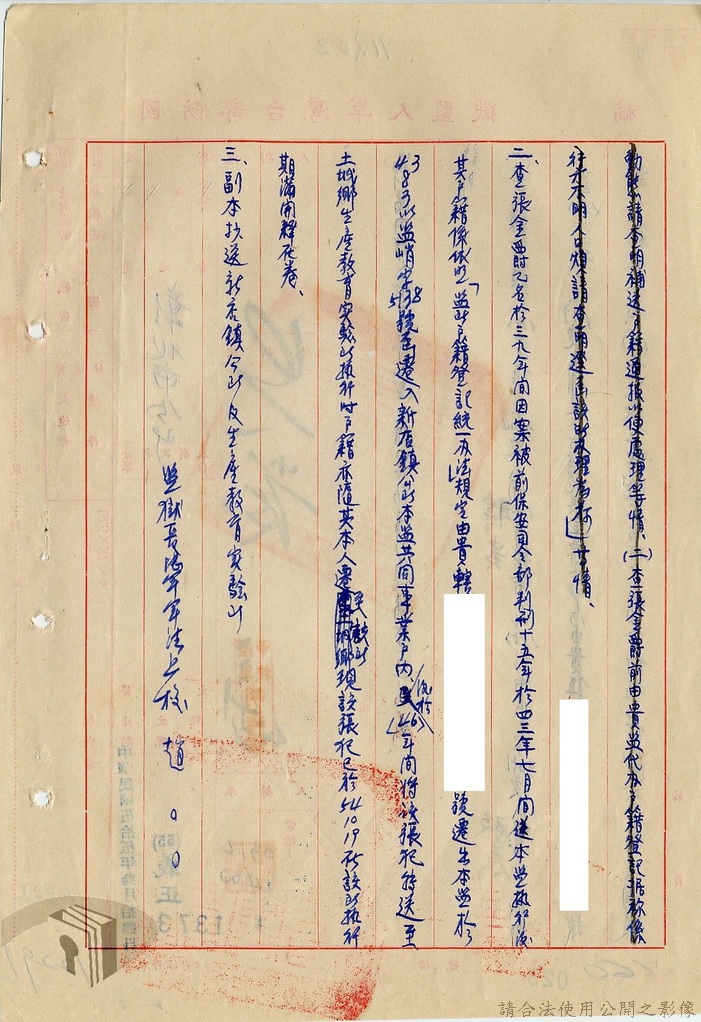 動態請查明補送戶籍通報以便處理等情、(二)查張金爵前由貴監代办戶籍登記据称係
行方不明人口煩請查明逕函該所办理為荷」等情、
二、查張金爵乙名於三九年間因案被前保安司令部判刑十五年於四三年七月間送本監执行後
其戶籍係依照「監所戶籍登記統一办法」規定由貴轄
號遷出本監於
43 8 5以監峭字538號函遷入新店鎮公所本監共同事業戶內、後於46年間将該張犯移送至
土城鄉生產教育實驗所执行时戶籍亦隨其本人遷至土城鄉現該張犯已於54 10 19在該所执行
期滿開釋在卷、
三、副本抄送新店鎮公所及生產教育實驗所
監獄長陸軍軍法上校 趙〇〇
請合法使用公開之影像